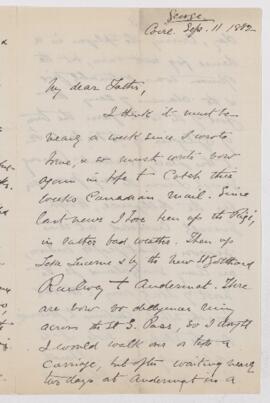 George
Coire, Sep. 11 1882
My dear Father,
I think it must be
nearly a week since I wrote
home, & so must write now
again in hope to catch this
weeks Canadian mail. Since
last news I have been up the Rigi,
in rather bad weather. Then up
Lake Lucerne & by the new St Gotthard
Railway to Andermat. There
are now no diligences running
across the St G. Pass, so I thought
I would walk over or take a
carriage, but after waiting nearly
two days at Andermat in a